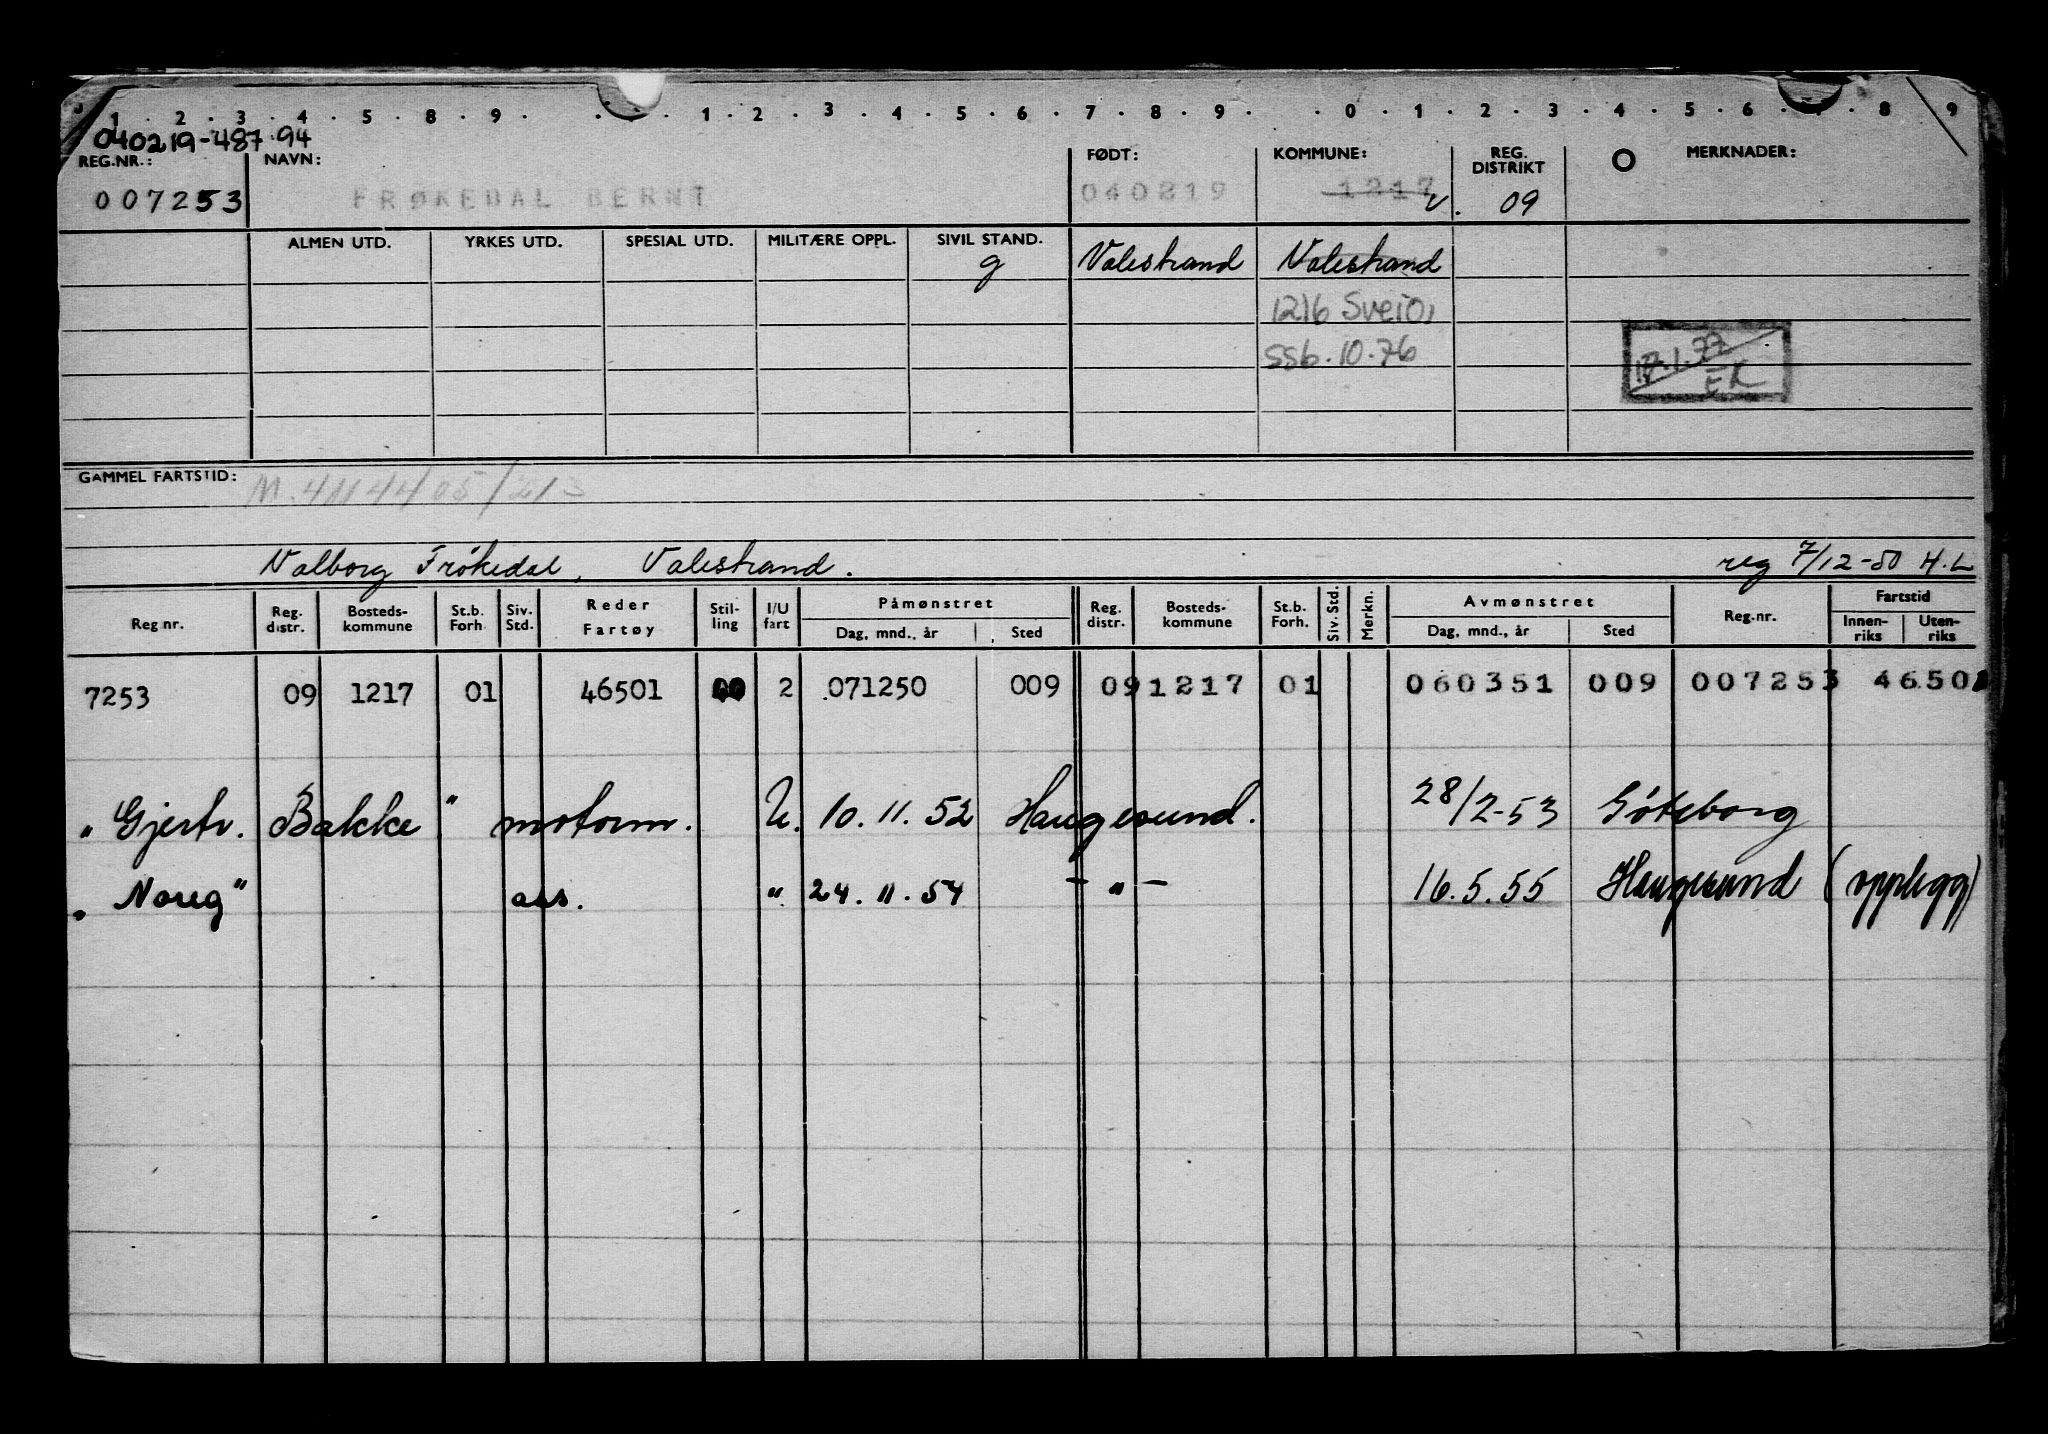 1 . 2 . 3 . 4 . 5 . 8 . 9 . . 1 . 2 . 3 . 4 . 5 . 6 . 7 . 8 . 9 . . 0 . 1 . 2 . 3 . 4 . 5 . 6 . 7 . 8 . 9
040219-487 94
REG.NR.: NAVN: FØDT: KOMMUNE: REG. DISTRIKT O MERKNADER:
007253 FRØKEDAL BERNT 040219 1217 v. 09
ALMEN UTD. YRKES UTD. SPESIAL UTD. MILITÆRE OPPL. SIVIL STAND.
g Valestrand Valestrand
1216 Sveio,
SSB.10.76
17.1.77 EK
GAMMEL FARTSTID: M.41144/05/213
Valborg Frøkedal, Valestrand. reg 7/12-50 H.L
Reg nr. Reg. distr. Bosteds-kommune St.b. Forh. Siv. Std. Reder Fartøy Stil-ling I/U fart Påmønstret Dag, mnd., år Sted Reg. distr. Bosteds-kommune St.b. Forh. Siv. Std. Merkn. Avmønstret Dag, mnd., år Sted Reg.nr. Fartstid Innen-riks Uten-riks
7253 09 1217 01 46501 2 071250 009 09 1217 01 060351 009 007253 46501
"Gjertr. Bakke" motorm. U. 10.11.52 Haugesund. 28/2-53 Göteborg
"Noreg" ass. " 24.11.54 -"- 16.5.55 Haugesund (opplegg)